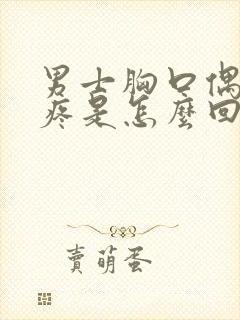 男士胸口偶
疼是怎麼回
賣萌蛋